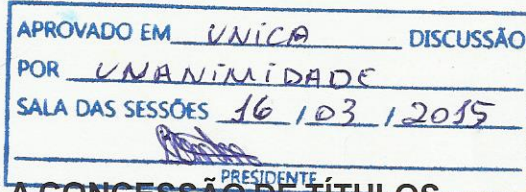 APROVADO EM UNICA DISCUSSÃO
POR UNANIMIDADE
SALA DAS SESSÕES 16 / 03 / 2015
PRESIDENTE
A CONCESSÃO DE TÍTULOS